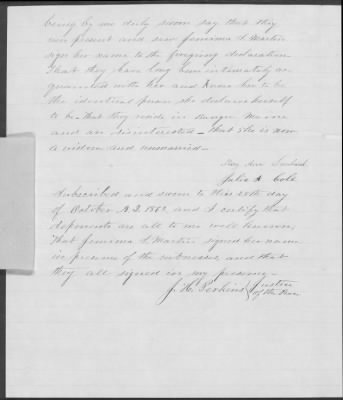 being by me duly sworn say that they
were present and saw Jemima S. Martin
sign her name to the foregoing declaration
That they have long been intimately ac-
quainted with her and know her to be
the identical person she declares herself
to be, that they reside in Bangor Maine
and are disinterested - that she is now
a widow and unmarried -
Mary Ann
Julia A Cole
Subscribed and sworn to this 28th day
of October A.D. 1862, and I certify that
deponents are all to me well known
That Jemima S. Martin signed her name
in presence of the witnesses, and that
they all signed in my presence -
J. H. Perkins Justice
of the Peace